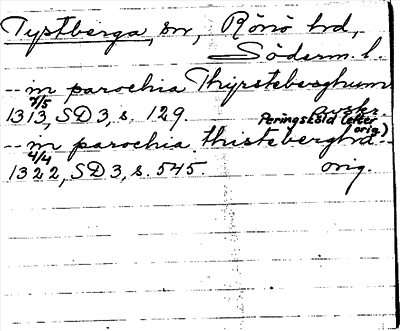 Tystberga, sn, Rönö hd,
Söderm. l.
-- in parochia Thyrsteberghum
1313 7/5, SD 3, s. 129. avskr.
Peringskiöld (efter orig.)
-- in parochia thistebergha --
1322 4/4, SD 3, s. 545. orig.